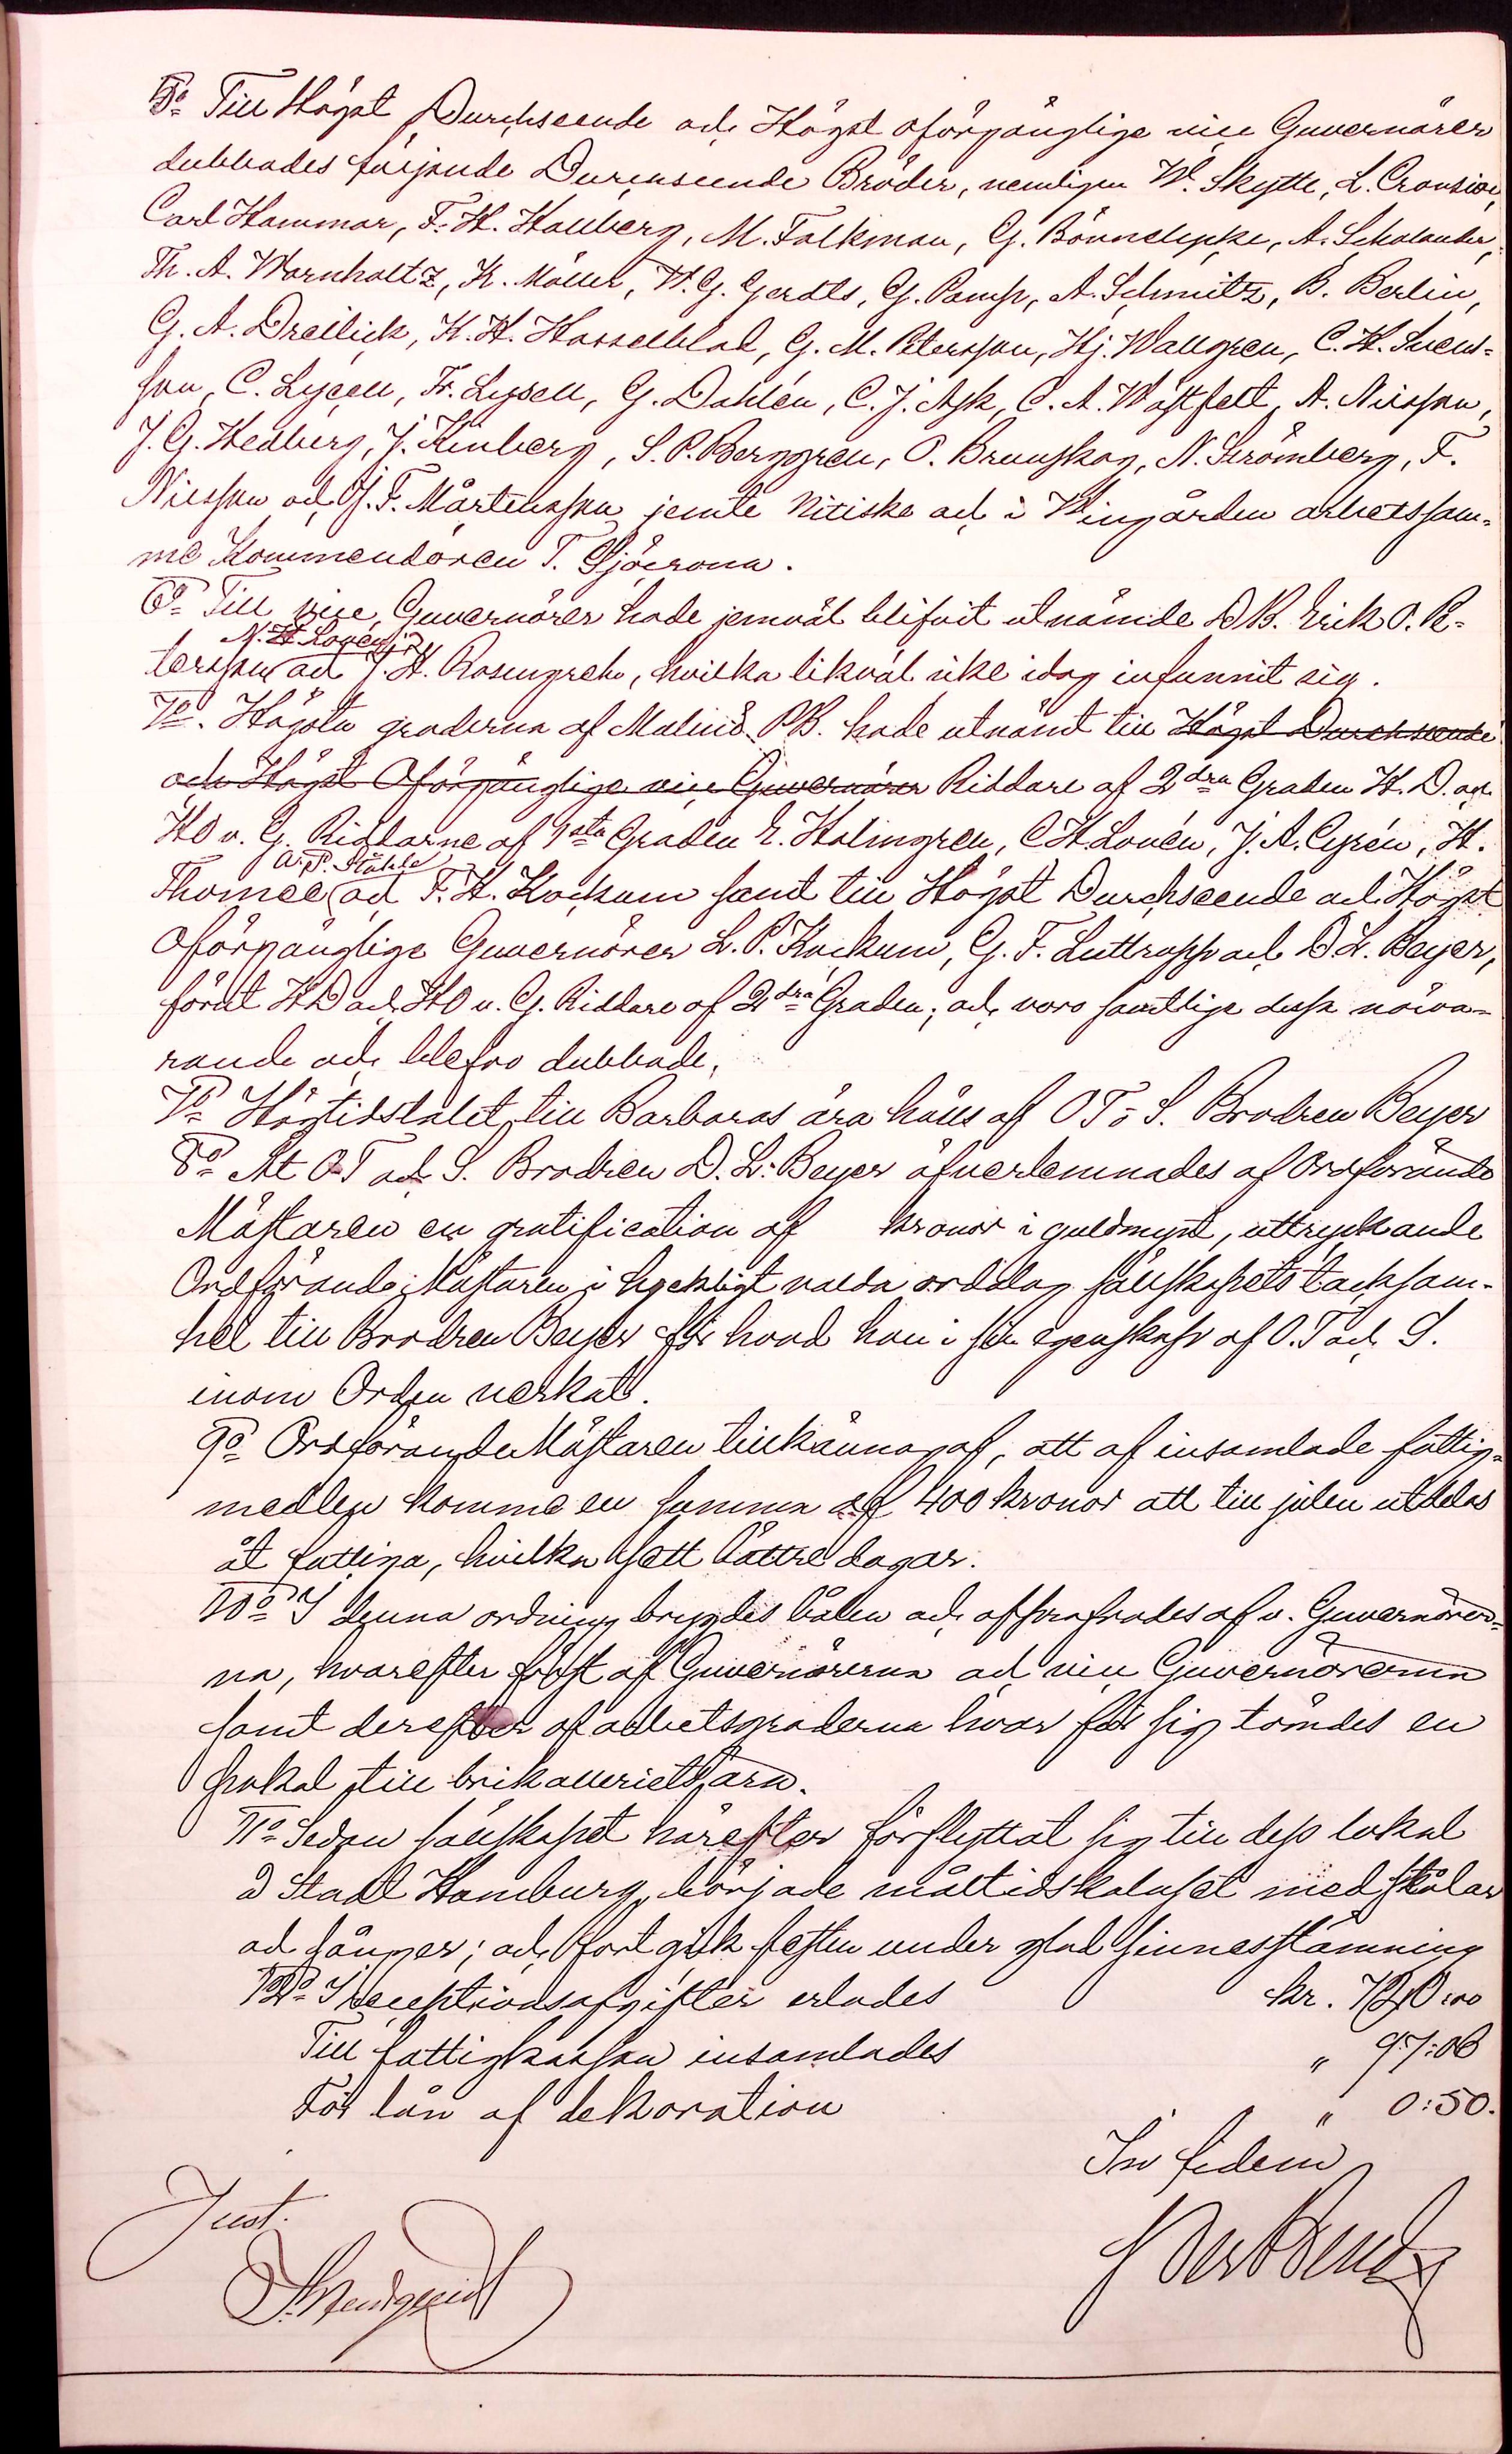 5º Till Högst Durchseende och Högst oförgänglige vice Guvernörer
dubbades följande Durchseende Bröder, nemligen W. Skytte, L. Cronsioe,
Carl Hammar, F. H. Hallberg, M. Falkman, G. Bönnelycke, A. Scholander,
Th. A. Warnholtz, K. Möller, W. G. Gerdts, G. Pamp, A. Schmitz, B. Berlin,
G. A. Dreilick, K. H. Hasselblad, G. M. Petersson, Hj. Wallgren, C. H. Svens-
son, C. Lysell, Fr. Lysell, G. Dahlén, C. J. Ask, C. A. Wästfelt, A. Nilsson,
J. G. Hedberg, J. Kinberg, S. P. Berggren, O. Brunskog, N. Strömberg, F.
Nilsson och J. F. Mårtensson jemte Nitiske och i Wingården arbetssam-
me Kommendören T. Sjöcrona.
6º Till vice Guvernörer hade jemväl blifvit utnämnde D B. Erik O. Pe-
N. H. Lovén
tersson och J. H. Rosengren, hvilka likväl icke idag infunnit sig.
7º. Högsta graderna af Malmö PB. hade utnämt till Högst Durchseende
och Högst Oförgänglige vice Guvernörer Riddare af 2dra Graden H. D. och
HO v. G. Riddarne af 1sta Graden E. Holmgren, C H. Lovén, J. A. Cyrén, H.
A. P. Ståhle
Thomée och F. H. Kockum samt till Högst Durchseende och Högst
Oförgänglige Guvernörer L. P. Kockum, G. F. Luttropp och D. L. Beijer,
förut H D och HO v. G. Riddare af 2dra Graden; och voro samtlige dessa närva-
rande och blefvo dubbade.
7º Högtidstalet till Barbaras ära hålls af O T o S. Brodren Beyer
8º At O T och S. Brodren D. L. Beyer öfverlemnades af Ordförande
Mästaren en gratification af kronor i guldmynt, uttryckande
Ordförande Mästaren i hjertligt valda ordalag sällskapets tacksam-
het till Brodren Beyer för hvad han i sin egenskap af O. T och S.
inom Orden verkat.
9º Ordförande Mästaren tillkännagaf, att af insamlade fattig-
medlen komme en summa af 400 kronor att till julen utdelas
åt fattiga, hvilka sett bättre dagar.
10º I denna ordning bryggdes bålen och afprofvades af v. Guvernörer-
na, hvarefter först af Guvernörerna och vice Guvernörerna
samt derefter af arbetsgraderna hvar för sig tömdes en
pokal till brikolleriets ära.
11º Sedan sällskapet härefter förflyttat sig till dess lokal
å Stadt Hamburg, började måltidskalaset med skålar
och sånger; och fortgick festen under glad sinnesstämning
12º I receptionsafgifter erlades kr. 720:00
Till fattigkassan insamlades " 97:06
För lån af dekoration " 0:50.
In fidem
Just.